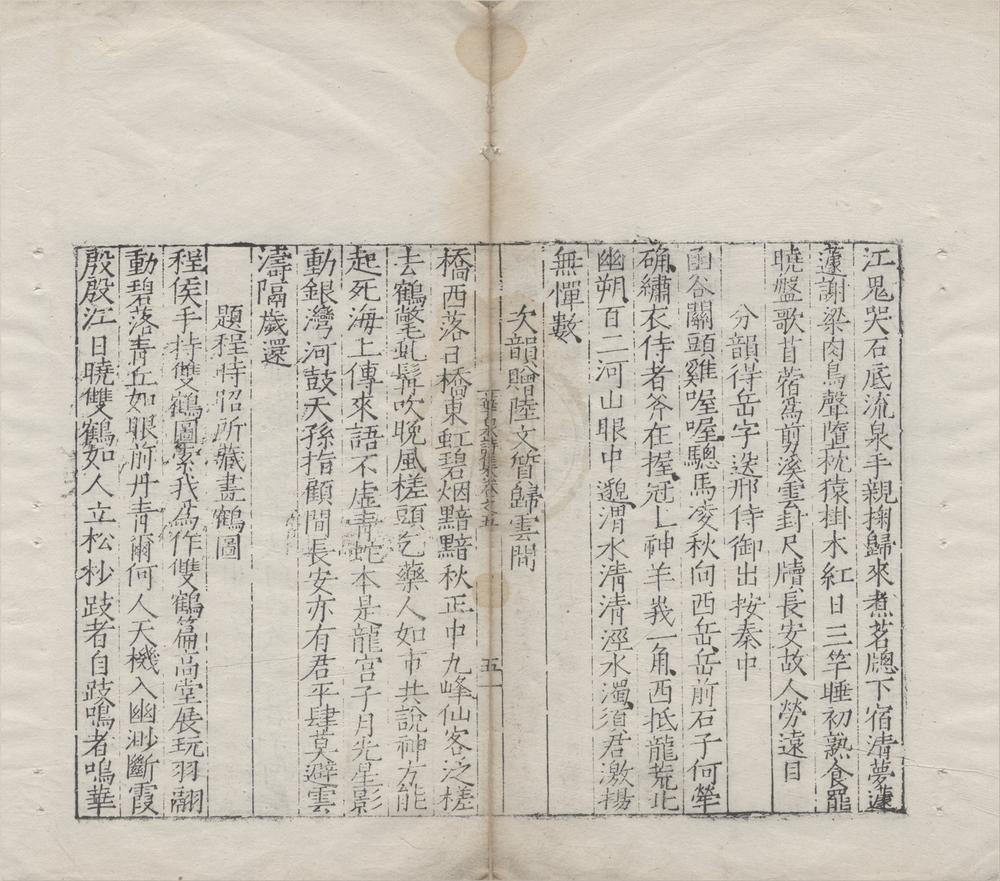 江鬼哭石底流泉手親掬歸來煮茗牕下宿清夢蘧
蘧謝梁肉鳥聲墮枕猿掛木紅日三竿睡初熟食罷
曉盤歌苜蓿爲剪溪雲封尺牘長安故人勞遠目
分韻得岳字送邢侍御出按秦中
函谷關頭雞喔喔驄馬凌秋向西岳岳前石子何犖
确繡衣侍者斧在握冠上神羊峩一角西抵龍荒北
幽朔百二河山眼中邈渭水清清涇水濁須君激揚
無憚數
次韻贈陸文質歸雲間
華泉詩集卷之五
五
橋西落日橋東虹碧烟黯黯秋正中九峰仙客泛槎
去鶴氅虬髯吹晚風槎頭乞藥人如市共說神方能
起死海上傳來語不虛青蛇本是龍宮子月光星影
動銀灣河鼓天孫指顧間長安亦有君平肆莫避雲
濤隔歲還
題程時昭所藏畫鶴圖
程侯手持雙鶴圖索我為作雙鶴篇高堂展玩羽翮
動碧落青丘如眼前丹青爾何人天機入幽渺斷霞
殷殷江日曉雙鶴如人立松杪跂者自跂鳴者鳴華